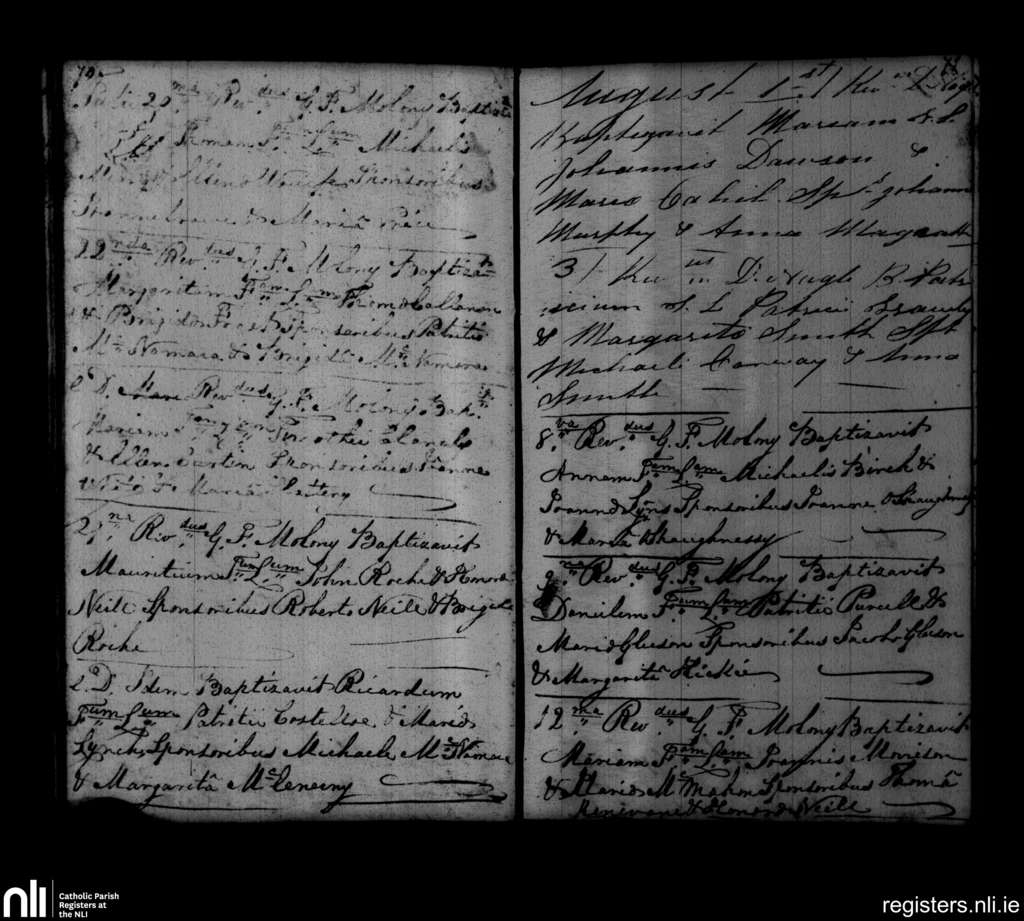 70
Julii 20 Revdus G. F. Molony Baptizavit
Thomam Fum Lum Michaelis
Sponsoribus
& Maria
22nda Revdus G. F. Molony Baptizavit
Margaritam Fam Lam Thomæ Callanan
& Brigidæ Sponsoribus Patritio
Mc Namara & Brigitta Mc Namara
Revdus G. F. Molony Bapt
Mariam Fam Lam Timothei Clancy
& Ellen Sponsoribus Joanne
& Maria Slattery
27ma Revdus G. F. Molony Baptizavit
Mauritium Fum Lum John Roche & Honoræ
Neill Sponsoribus Roberto Neill & Brigida
Roche
E. D. Idem Baptizavit Ricardum
Fum Lum Patritii Costelloe & Mariæ
Lynch Sponsoribus Michaele Mc Namara
& Margarita Mc Enerny
August 1st Revdus D. Nagle
Baptizavit Mariam f. l.
Johannis Dawson &
Maria Cahil Sps Johann
Murphy & Anna Magrath
3 / Revdus D. Nagle B. Pat
ricium f. L Patricii
& Margarita Smith Sps
Michaeli Conway & Anna
Smith
8va Revdus G. F. Molony Baptizavit
Annam Fam Lam Michaelis Birck &
Joannæ Lyns Sponsoribus Joanne OShaughnessy
& Maria OShaughnessy
9na Revdus G. F. Molony Baptizavit
Danielem Fum Lum Patritii Purcell &
Mariæ Gleeson Sponsoribus Jacobo Gleeson
& Margarita Hickie
12ma Revdus G. F. Molony Baptizavit
Mariam Fam Lam Joannis Morrison
& Mariæ Mc Mahon Sponsoribus Thoma
& Honora Neill
nli
Catholic Parish
Registers at
the NLI
registers.nli.ie